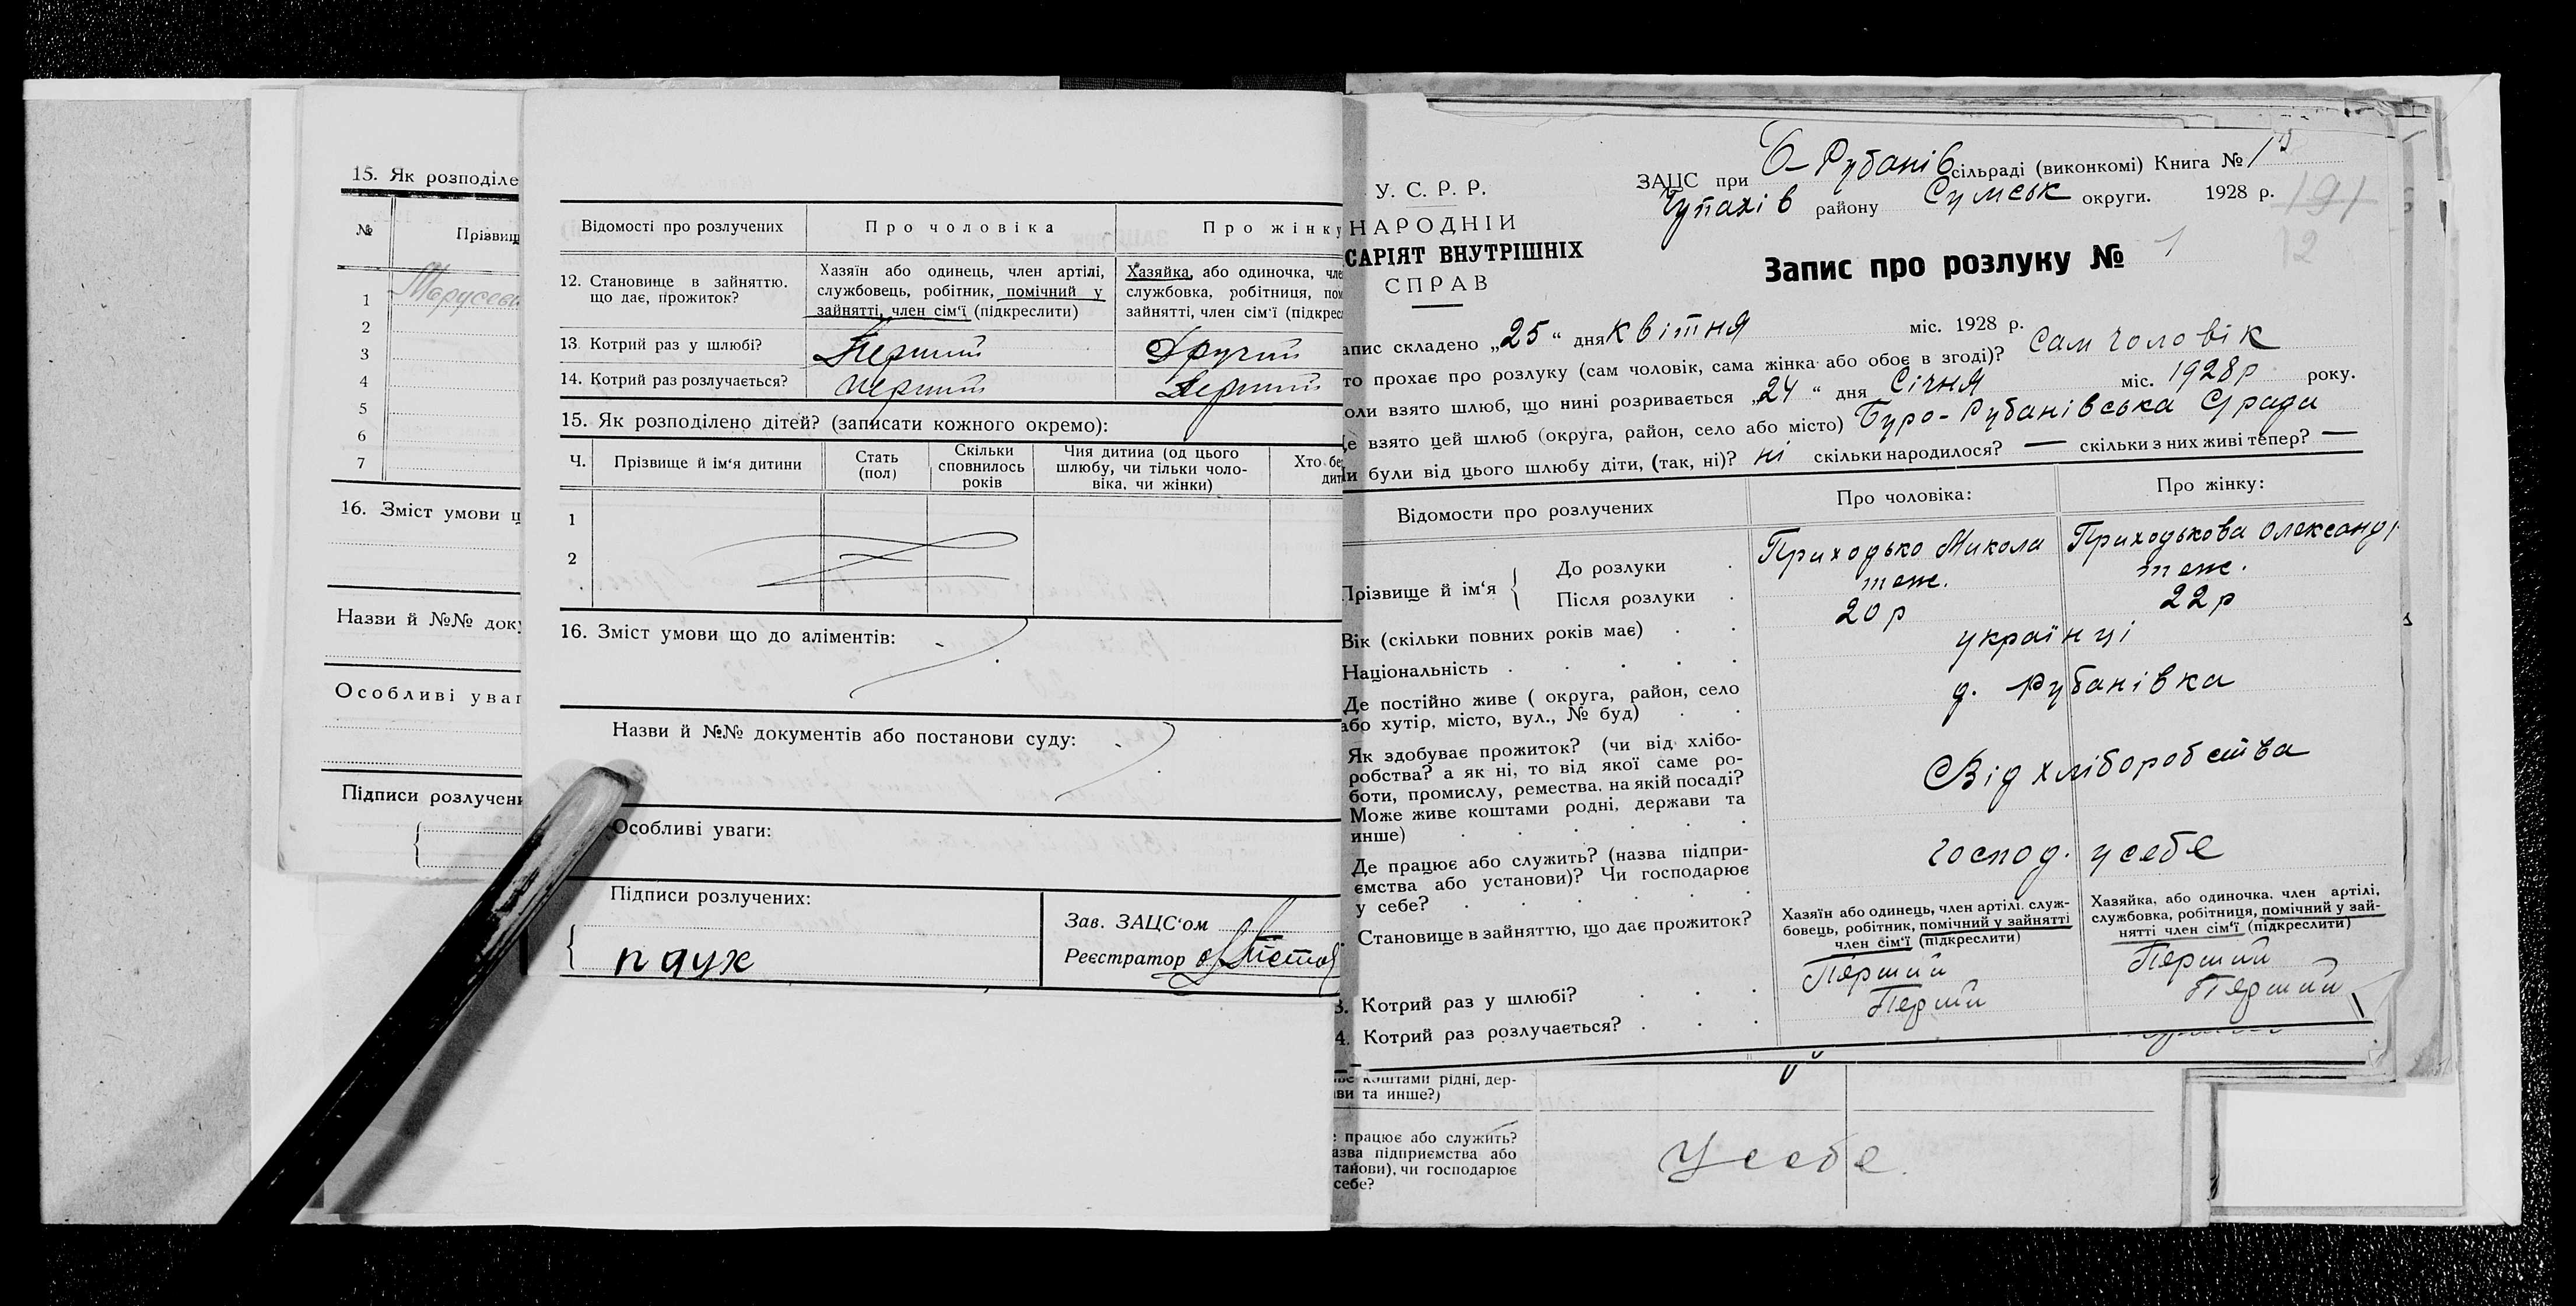 15. Як розподіле
№ Прізвищ
1
2
3
4
5
6
7
16. Зміст умови щ
Назви й №№ док
Особливі уваг
Підписи розлучен
Відомості про розлучених Про чоловіка Про жінку
12. Становище в зайняттю. що дає, прожиток?
Хазяїн або одинець, член артілі,
службовець, робітник, помічний у
зайнятті, член сім'ї (підкреслити)
Хазяйка, або одиночка, чле
службовка, робітниця, пом
зайнятті, член сім'ї (підкрес
13. Котрий раз у шлюбі? Перший Другий
14. Котрий раз розлучається? перший Перший
15. Як розподілено дітей? (записати кожного окремо):
Ч. Прізвище й ім'я дитини Стать (пол) Скільки сповнилось років Чия дитина (од цього шлюбу, чи тільки чоловіка, чи жінки) Хто бе дит
1
2
16. Зміст умови що до аліментів:
Назви й №№ документів або постанови суду:
Особливі уваги:
Підписи розлучених:
Зав. ЗАЦС'ом
паух
Реєстратор
У. С. Р. Р.
НАРОДНІЙ
САРІЯТ ВНУТРІШНІХ
СПРАВ
ЗАЦС при Б-Рубанів сільраді (виконкомі) Книга № 1
Чупахів району Сумськ округи. 1928 р.
191
12
Запис про розлуку № 1
апис складено „25" дня квітня міс. 1928 р.
то прохає про розлуку (сам чоловік, сама жінка або обоє в згоді)? Сам чоловік
оли взято шлюб, що нині розривається „24" дня Січня міс. 1928р року.
е взято цей шлюб (округа, район, село або місто) Буро-Рубанівська С/рада
и були від цього шлюбу діти, (так, ні)? ні скільки народилося? — скільки з них живі тепер? —
Відомости про розлучених Про чоловіка: Про жінку:
Прізвище й ім'я До розлуки Приходько Микола Приходькова Олександ
Після розлуки теж. теж.
Вік (скільки повних років має) 20р 22р
Національність українці
Де постійно живе ( округа, район, село
або хутір, місто, вул., № буд) д. Рубанівка
Як здобуває прожиток? (чи від хлібо-
робства? а як ні, то від якої саме ро-
боти, промислу, ремества. на якій посаді?
Може живе коштами родні, держави та
инше)
Від хліборобства
Де працює або служить? (назва підпри-
ємства або установи)? Чи господарює
у себе?
господ. у себе
Становище в зайняттю, що дає прожиток?
Хазяїн або одинець, член артілі. служ-
бовець, робітник, помічний у зайнятті
член сім'ї (підкреслити)
Хазяйка, або одиночка. член артілі,
службовка, робітниця, помічний у зай-
нятті член сім'ї (підкреслити)
3. Котрий раз у шлюбі? Перший Перший
4. Котрий раз розлучається? Перший Перший
коштами рідні, дер-
ви та инше?)
працює або служить?
азва підприємства або
танови), чи господарює
себе?
У себе.